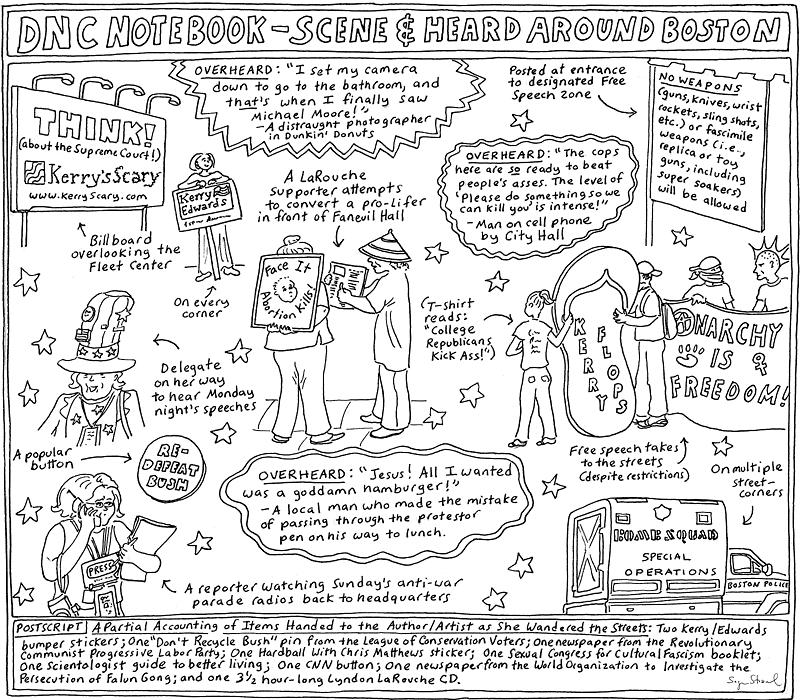 DNC NOTEBOOK - SCENE & HEARD AROUND BOSTON
THINK!
(about the Supreme Court!)
Kerry'sScary
www.kerryscary.com
Billboard
overlooking the
Fleet Center
OVERHEARD: "I set my camera
down to go to the bathroom, and
that's when I finally saw
Michael Moore!"
-A distraught photographer
in Dunkin' Donuts
Posted at entrance
to designated Free
Speech Zone
NO WEAPONS
(guns, knives, wrist
rockets, sling shots,
etc.) or fascimile
weapons (i.e.,
replica or toy
guns, including
super soakers)
will be allowed
Kerry
Edwards
On every
corner
A LaRouche
supporter attempts
to convert a pro-lifer
in front of Faneuil Hall
Face It
Abortion Kills!
OVERHEARD: "The cops
here are so ready to beat
people's asses. The level of
'Please do something so we
can kill you' is intense!"
-Man on cell phone
by City Hall
(T-shirt
reads:
"College
Republicans
Kick Ass!")
KERRY
FLOPS
ANARCHY
IS
FREEDOM!
Free speech takes
to the streets
(despite restrictions)
Delegate
on her way
to hear Monday
night's speeches
A popular
button
RE-
DEFEAT
BUSH
OVERHEARD: "Jesus! All I wanted
was a goddamn hamburger!"
-A local man who made the mistake
of passing through the protestor
pen on his way to lunch.
On multiple
street-
corners
BOMB SQUAD
SPECIAL
OPERATIONS
BOSTON POLICE
PRESS
A reporter watching Sunday's anti-war
parade radios back to headquarters
POSTSCRIPT A Partial Accounting of Items Handed to the Author/Artist as She Wandered the Streets: Two Kerry/Edwards
bumper stickers; One "Don't Recycle Bush" pin from the League of Conservation Voters; One newspaper from the Revolutionary
Communist Progressive Labor Party; One Hardball With Chris Matthews sticker; One Sexual Congress for Cultural Fascism booklet;
One Scientologist guide to better living; One CNN button; One newspaper from the World Organization to Investigate the
Persecution of Falun Gong; and one 3½ hour-long Lyndon LaRouche CD.